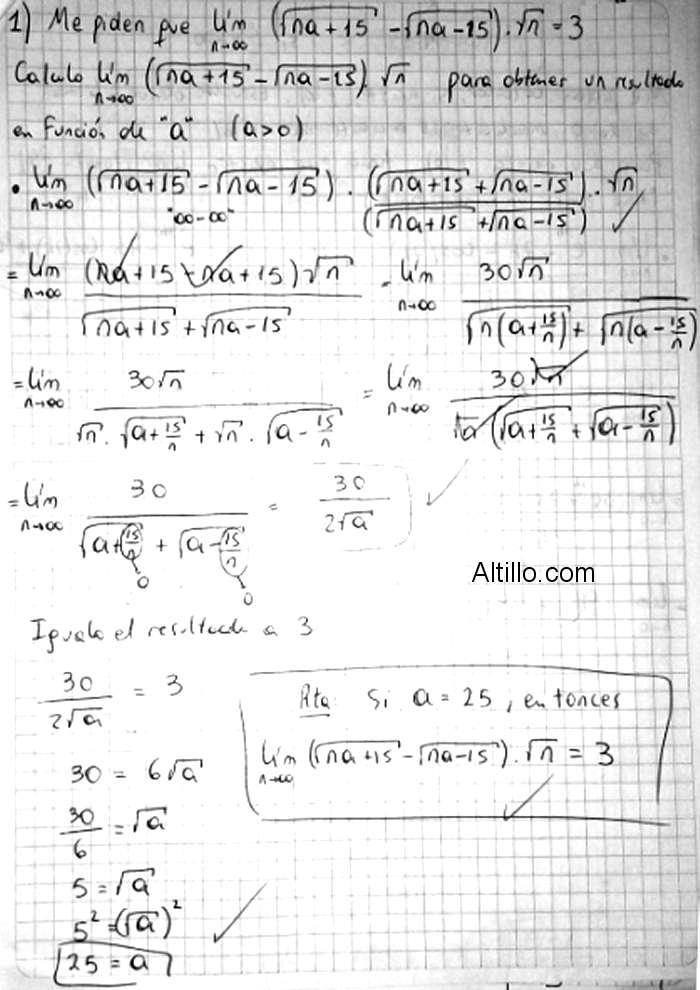 1) Me piden que lím n→∞ (√na+15 - √na-15).√n = 3
Calculo lím n→∞ (√na+15 - √na-15) √n para obtener un resultado
en función de "a" (a>0)
• lím n→∞ (√na+15 - √na-15) . (√na+15 + √na-15) / (√na+15 + √na-15) . √n ✓
"∞-∞"
= lím n→∞ (na+15-na+15)√n / √na+15 + √na-15 = lím n→∞ 30√n / √n(a+15/n) + √n(a-15/n)
= lím n→∞ 30√n / √n . √a+15/n + √n . √a-15/n = lím n→∞ 30√n / √n (√a+15/n + √a-15/n)
= lím n→∞ 30 / √a+15/n + √a-15/n = 30 / 2√a ✓
0 0
Altillo.com
Igualo el resultado a 3
30 / 2√a = 3
Rta: Si a = 25, entonces
lím n→∞ (√na+15 - √na-15).√n = 3 ✓
30 = 6√a
30 / 6 = √a
5 = √a
5² = (√a)² ✓
25 = a